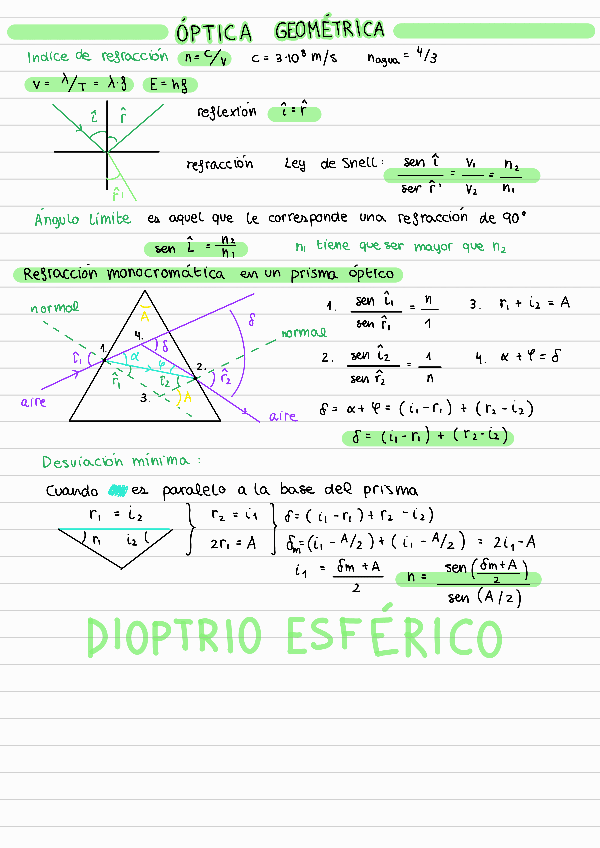 ÓPTICA GEOMÉTRICA
Indice de refracción n = c/v c = 3·10⁸ m/s nagua = 4/3
v = λ/T = λ·f E = hf
î r̂ reflexión î = r̂
r̂' refracción Ley de Snell: sen î / sen r̂' = v₁/v₂ = n₂/n₁
Ángulo Límite es aquel que le corresponde una refracción de 90°
sen L̂ = n₂/n₁ n₁ tiene que ser mayor que n₂
Refracción monocromática en un prisma óptico
normal A 4. δ δ normal
1. î₁ α r̂₁ φ î₂ 2. r̂₂
aire 3. A aire
1. sen î₁ / sen r̂₁ = n/1 3. r₁ + i₂ = A
2. sen î₂ / sen r̂₂ = 1/n 4. α + φ = δ
δ = α + φ = (i₁ - r₁) + (r₂ - i₂)
δ = (i₁ - r₁) + (r₂ - i₂)
Desviación mínima:
Cuando es paralelo a la base del prisma
r₁ = i₂ r₂ = i₁ δ = (i₁ - r₁) + r₂ - i₂)
r₁ i₂ 2r₁ = A δm = (i₁ - A/2) + (i₁ - A/2) = 2i₁ - A
i₁ = δm + A / 2 n = sen(δm + A / 2) / sen (A/2)
DIOPTRIO ESFÉRICO